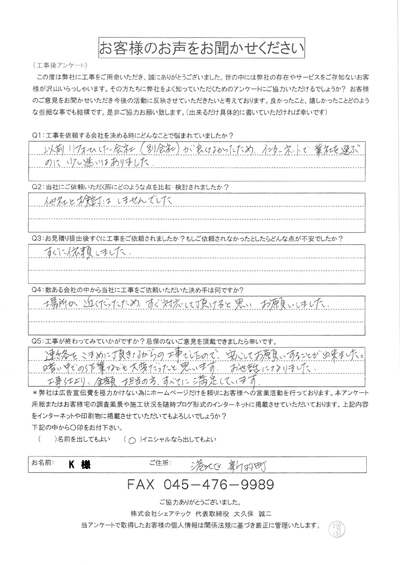 お客様のお声をお聞かせください
(工事後アンケート)
この度は弊社に工事をご用命いただき、誠にありがとうございました。世の中には弊社の存在やサービスをご存知ないお客
様が沢山いらっしゃいます。その方たちに弊社をよく知っていただくためのアンケートにご協力いただけるでしょうか? お客
様のご意見をお聞かせいただき今後の活動に反映させていただきたいと考えております。良かったこと、嬉しかったことどのよう
な些細な事でも結構です、是非ご協力お願いします。(出来るだけ具体的に書いていただければ幸いです)
Q1:工事を依頼する会社を決める時にどんなことで悩まれていましたか?
以前リフォームした会社(別会社)が良くなかったため、インターネットで業者を選ぶ
のに少し迷いはありました
Q2:当社にご依頼いただく際にどのような点を比較・検討されましたか?
他社と検討はしませんでした
Q3:お見積り提出後すぐに工事をご依頼されましたか?もしご依頼されなかったとしたらどんな点が不安でしたか?
すぐに依頼しました
Q4:数ある会社の中から当社に工事をご依頼いただいた決め手は何ですか?
場所が近くだったため すぐ対応して頂けると思い お願いしました。
Q5:工事が終わってみていかがですか?忌憚のないご意見を頂戴できましたら幸いです。
連絡をこまめに頂きながらの工事でしたので、安心してお願いすることが出来ました。
暑い中での作業はとても大変だったと思います。お世話になりました。
工事仕上り、金額、担当の方、すべてに満足しています。
*弊社は広告宣伝費を極力かけない為にホームページだけを頼りにお客様への営業活動を行っております。本アンケート
用紙またはお客様宅の調査風景や施工状況を随時ブログ形式のインターネットに掲載させていただいております。上記内容
をインターネットや印刷物に掲載させていただいてもよろしいでしょうか?
下記の中から〇印をお付下さい。
( )名前を出してもよい (〇)イニシャルなら出してもよい
お名前: K 様 ご住所: 港北区 新羽町
FAX 045-476-9989
ご協力ありがとうございました。
株式会社シェアテック 代表取締役 大久保 誠二
当アンケートで取得したお客様の個人情報は関係法規に基づき厳正に管理いたします。